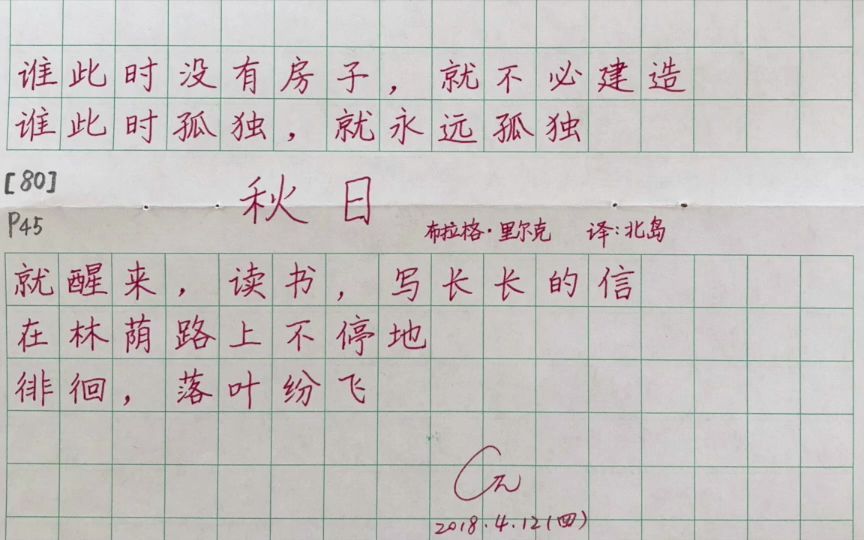 谁此时没有房子，就不必建造
谁此时孤独，就永远孤独
[80]
秋日
P45
布拉格·里尔克 译:北岛
就醒来，读书，写长长的信
在林荫路上不停地
徘徊，落叶纷飞
2018.4.12(四)